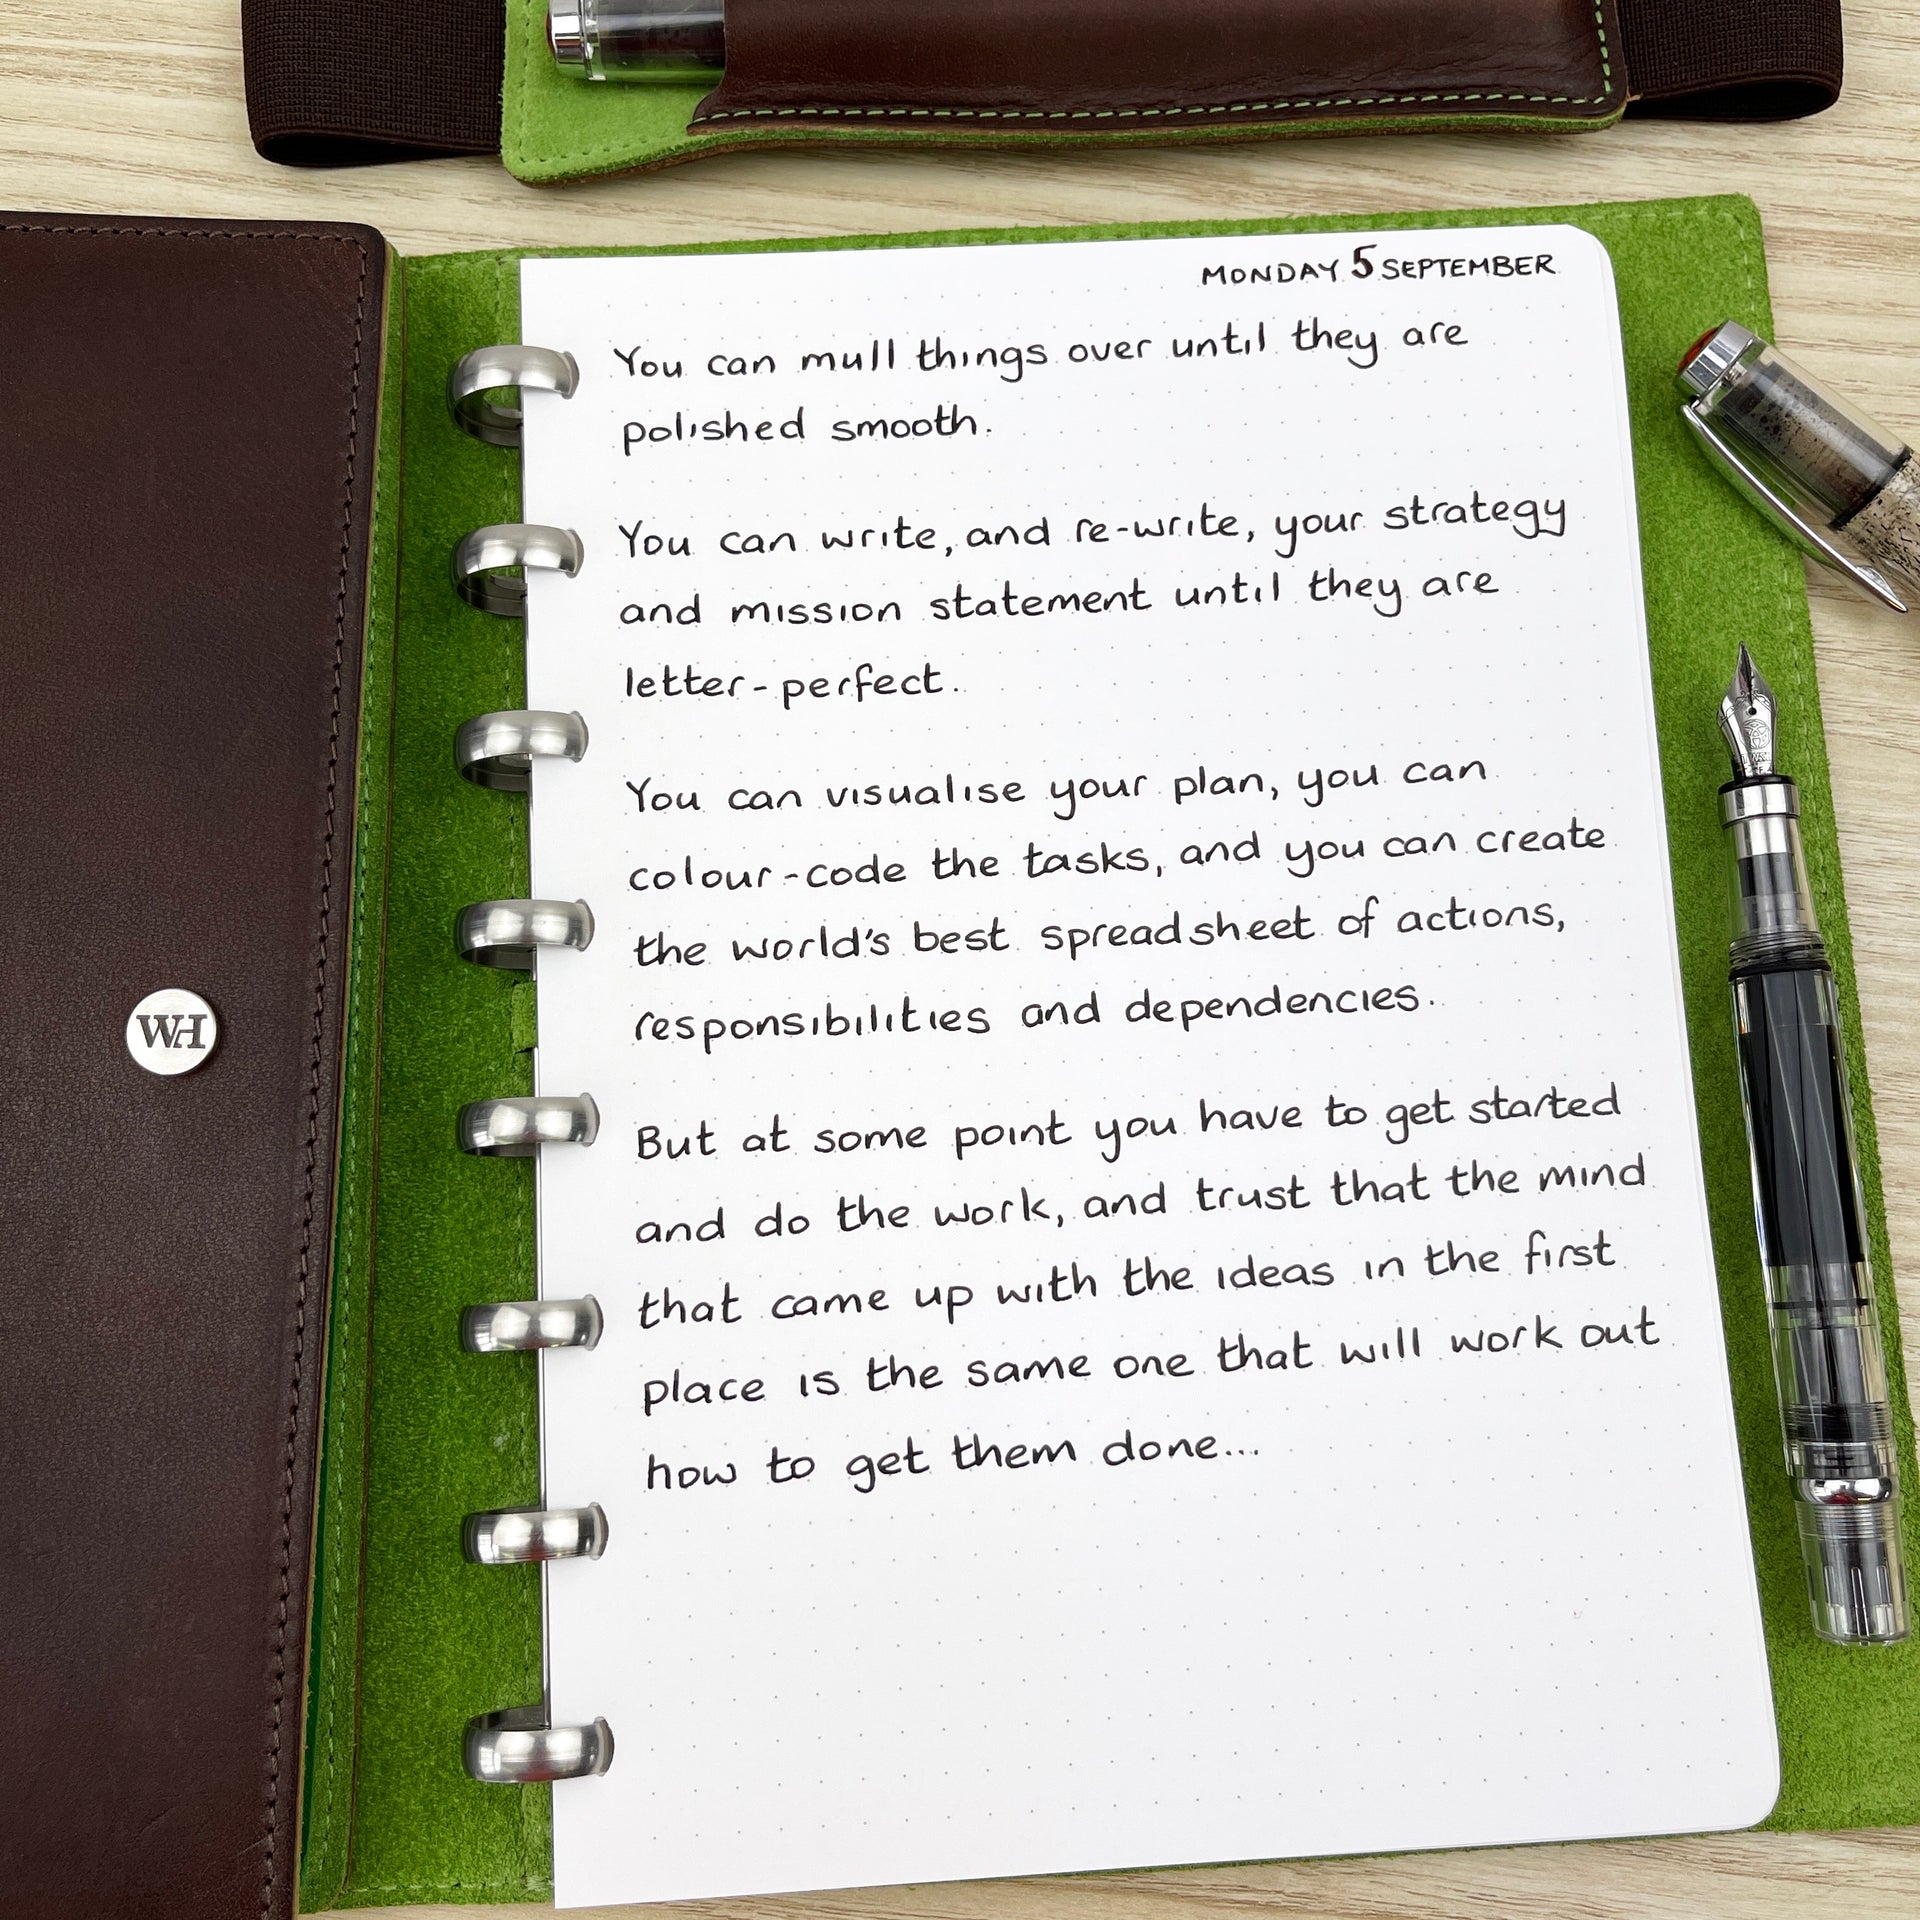 MONDAY 5 SEPTEMBER
You can mull things over until they are
polished smooth.
You can write, and re-write, your strategy
and mission statement until they are
letter-perfect.
You can visualise your plan, you can
colour-code the tasks, and you can create
the world's best spreadsheet of actions,
responsibilities and dependencies.
But at some point you have to get started
and do the work, and trust that the mind
that came up with the ideas in the first
place is the same one that will work out
how to get them done...
WH